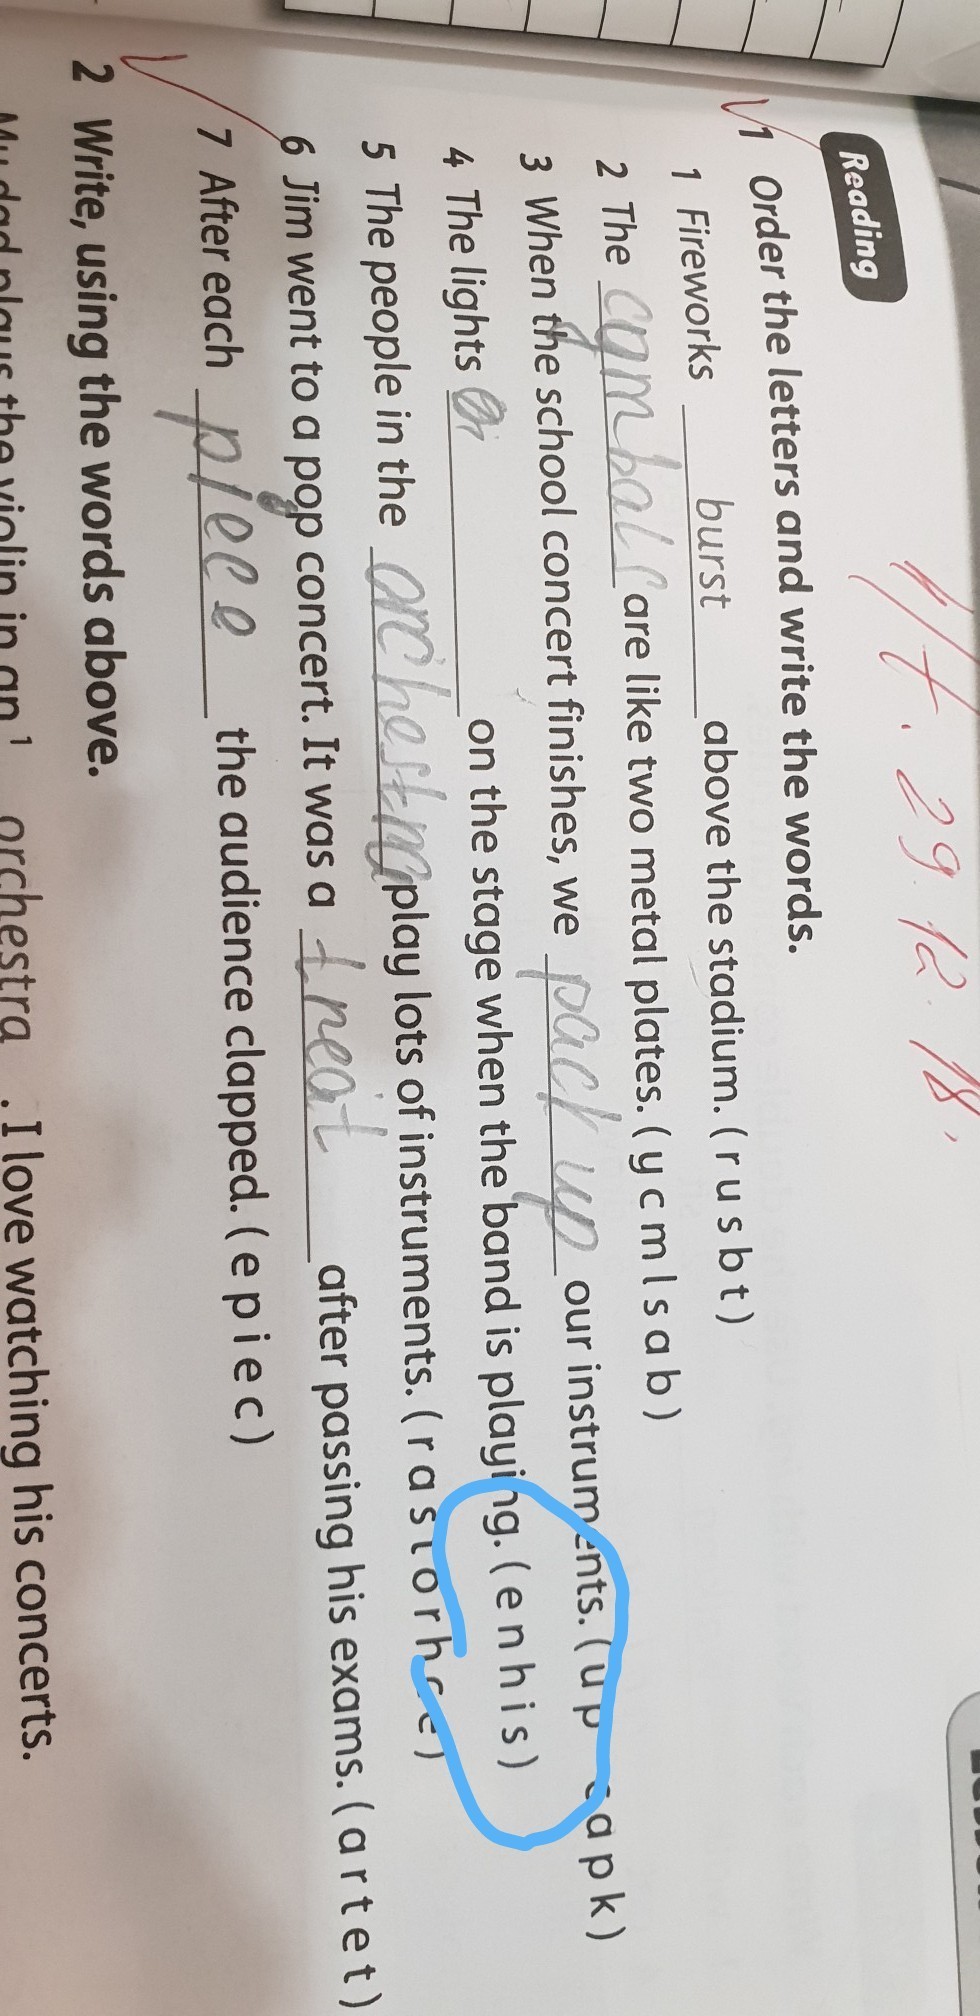 1/4. 29. 12. 18.
Reading
1 Order the letters and write the words.
1 Fireworks burst above the stadium. ( r u s b t )
2 The cymbals are like two metal plates. ( y c m l s a b )
3 When the school concert finishes, we pack up our instruments. ( u p c a p k )
4 The lights on the stage when the band is playing. ( e n h i s )
5 The people in the orchestra play lots of instruments. ( r a s t o r h c e )
6 Jim went to a pop concert. It was a treat after passing his exams. ( a r t e t )
7 After each piece the audience clapped. ( e p i e c )
2 Write, using the words above.
My dad plays the violin in an 1 orchestra . I love watching his concerts.